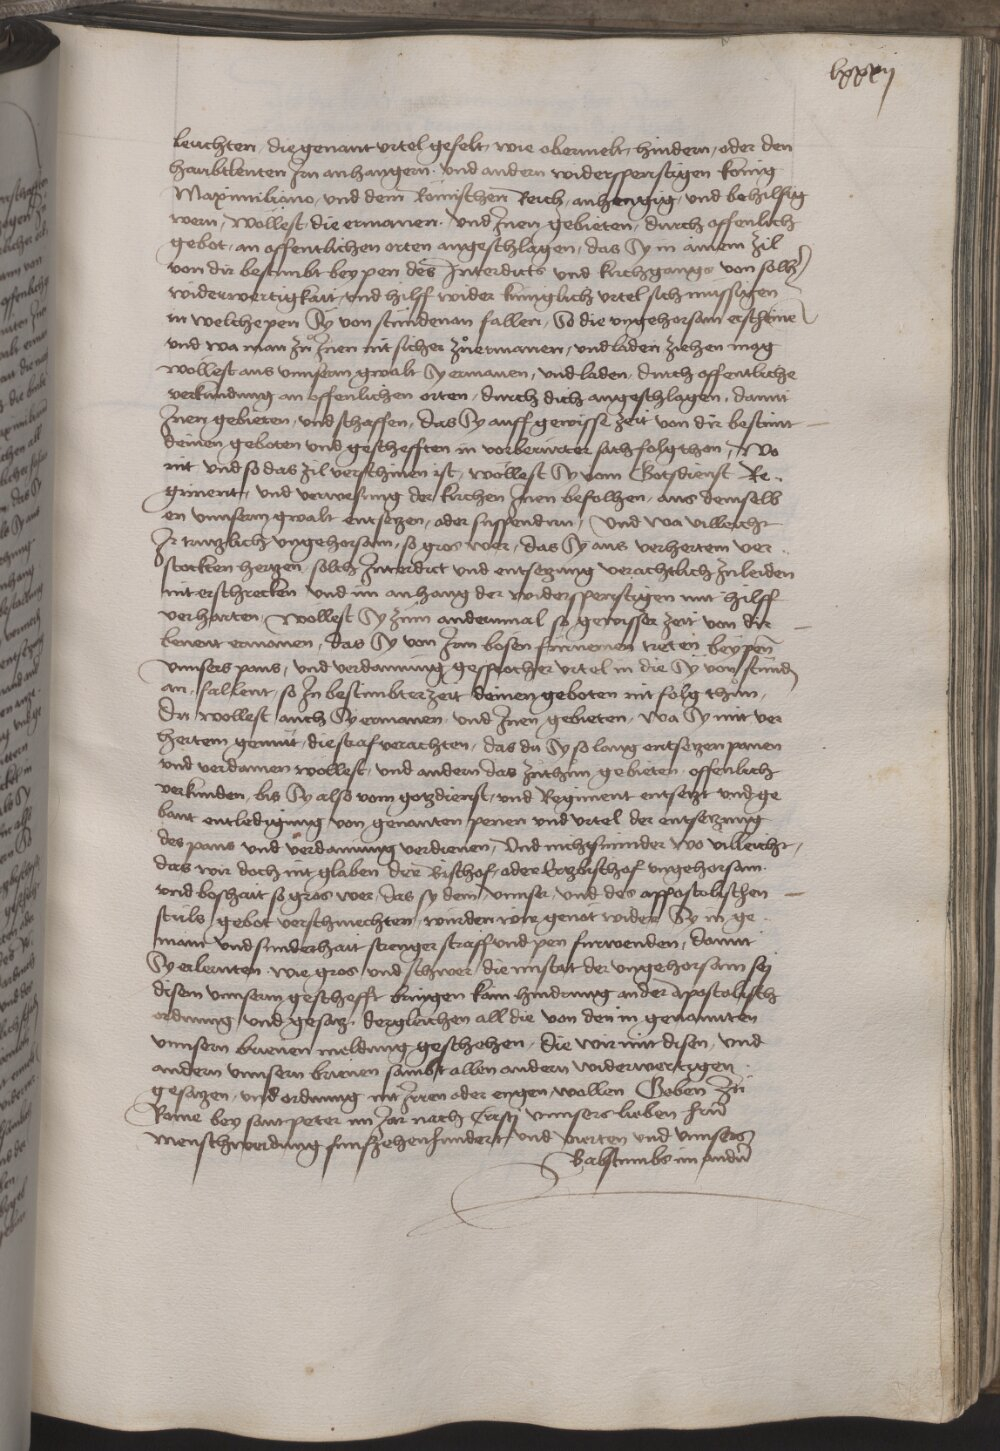 lxxxij
leuchten, die genant urtel gefelt, wie obermelt, hindern, oder den
haubtleuten Irn anhangern und andern widerspenstigen konig
Maximiliano, und dem Romischen Reich, anhengig, und behilflig
wern, wollest die ermanen. und Inen gebieten, durch offenlich
gebot, an offentlichen orten angeschlagen, das Sy in ainem zil
von dir bestimbt bey pen des Interdicts und kirchgangs von solh
widerwertigkait und hilff wider kuniglich urtel sich mussigen
in welche pen Sy von stunden an fallen, So die ungehorsam erscheine
und wa man zu Inen nit sicher zuermanen, und laden ziehen mag
wollest aus unnserm gwalt Sy ermanen, und laden, durch offentliche
verkundung an offenlichen orten, durch dich angeschlagen, damit
Inen gebieten, und schaffen, das Sy auff gewisse zeit von dir bestimt
deinen geboten und geschefften in vorberurter sach folg thon, Wo
nit und so das zil verschinen ist, wollest Sy vom Gotsdienst Re
giment, und verwesung der kirchen Inen befolhen, aus demselb
en unnserm gwalt entsetzen, oder suspendirn, Und wa villeicht
Ir trutzlich ungehorsam, so gros wer, das Sy aus verhertem ver
stockten hertzen, solch Interdict und entsetzung verachtlich zuleiden
nit erschrecken und im anhang der widerspenstigen mit hilff
verharten, Wollest Sy zum andernmal so gewisser zeit von dir
benent ermonen, das Sy von Irm bosen furnemen treten bey pen
unnsers pans, und verdamnung gesprocher urtel in die Sy von stund
an, fallent, so In bestimbter zeit deinen geboten nit folg thun,
Du wollest auch Sy ermanen und Inen gebieten, wa Sy mit ver
hertem gemut, die straf verachten, das du Sy so lang entsetzen panen
und verdamen wollest, und andern das zuthun gebieten, offenlich
verkunden, bis Sy also vom gotzdienst, und Regiment entsetzt und ge
bant entledigung von genanten penen und urtel der entsetzung
des pans und verdamung verdienen, Und nichtsminder wo villeicht,
das wir doch nit glaben der Bischof, oder Ertzbischof ungehorsam
und boshait so gros wer, das sy dem, unnser, und des appostolischen
stuls, gebot verschmechten, wurden wir genot wider Sy in ge
main und sunderhait strenger straff und pen furwenden, damit
Sy erlernten wie gros und schwer, die missetat der ungehorsam sei
disem unnserm gescheft bringen kain hindrung ander Apostolisch
ordnung, und gesatz, dergleichen all die von den in genannten
unnsern brieven meldung geschehen, die wir mit disen, und
andern unnsern brieven sambt allen andern widerwertigen
gesatzen, und ordnung nit Irren oder engen wollen Geben zu
Rome bey sant peter im Jar nach Cristi unnsers lieben hern
menschwerdung funfzehenhundert, und vierten und unnsers
Babstumbs im andern